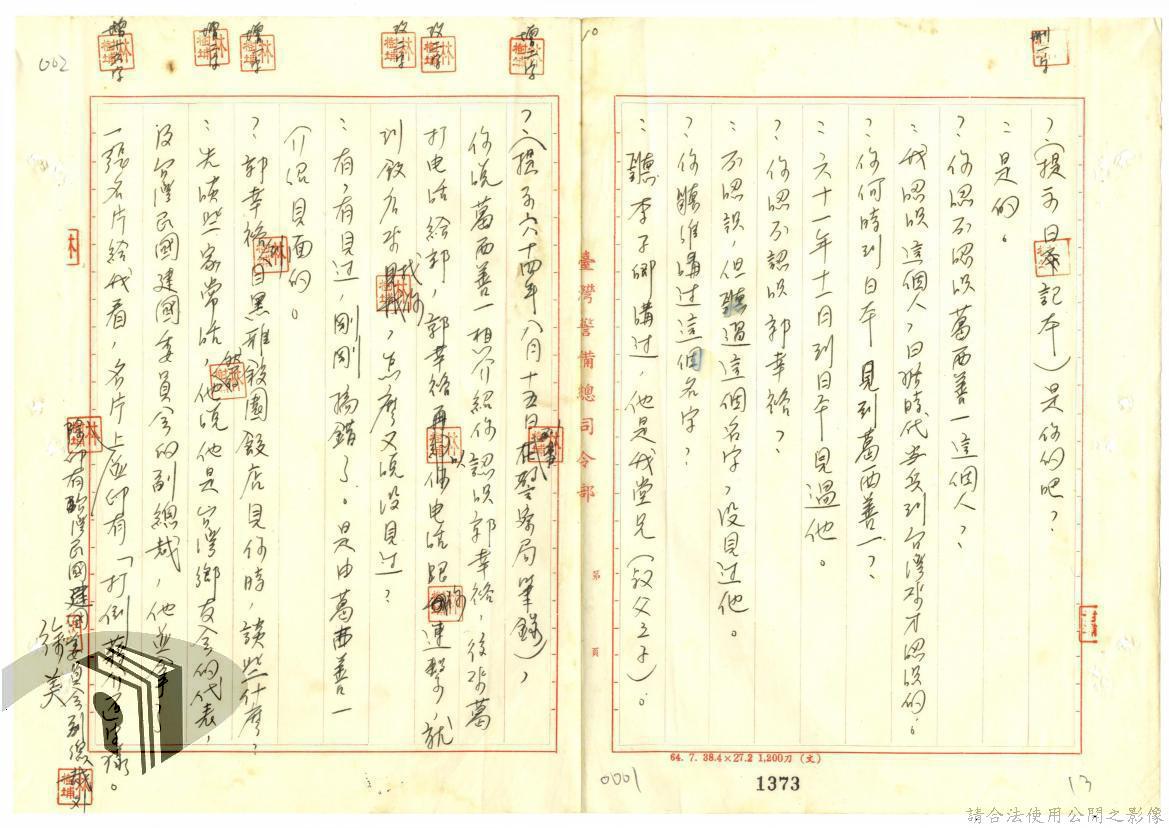 刪一字
?(提示日記本)是你的吧?
:是的。
?你認不認識葛西善一這個人?
:我認識這個人,日據時代當兵到台灣來才認識的。
?你何時到日本見到葛西善一?
:六十一年十一日到日本見過他。
?你認不認識郭幸裕?
:不認識,但聽過這個名字,沒見過他。
?你聽誰講过這個名字?
:聽李子卿講过,他是我堂兄(叔父之子)。
64. 7. 38.4×27.2 1,200刀(文)
1373
0001
13
臺灣警備總司令部
第 頁
10
增二字
改一字
改二字
增一字
增一字
002
?(提示六十四年八月十五日在警察局筆錄),
你說葛西善一相介紹你認識郭幸裕,後來葛
打电話給郭,郭幸裕再以电話跟你連繫,就
到飯店來找你,怎麼又說沒見过?
:有,有見过,剛剛搞錯了。是由葛西善一
介紹見面的。
?郭幸裕到目黑雅敘園飯店見你時,談些什麼?
:先談些家常話,然後他說他是台灣鄉友会的代表,
及台灣民國建國委員会的副總裁,他並拿了
一張名片給我看,名片上並印有「打倒蔣介石
除印有台灣民國建國委員会副總裁外
林
請合法使用公開之影像